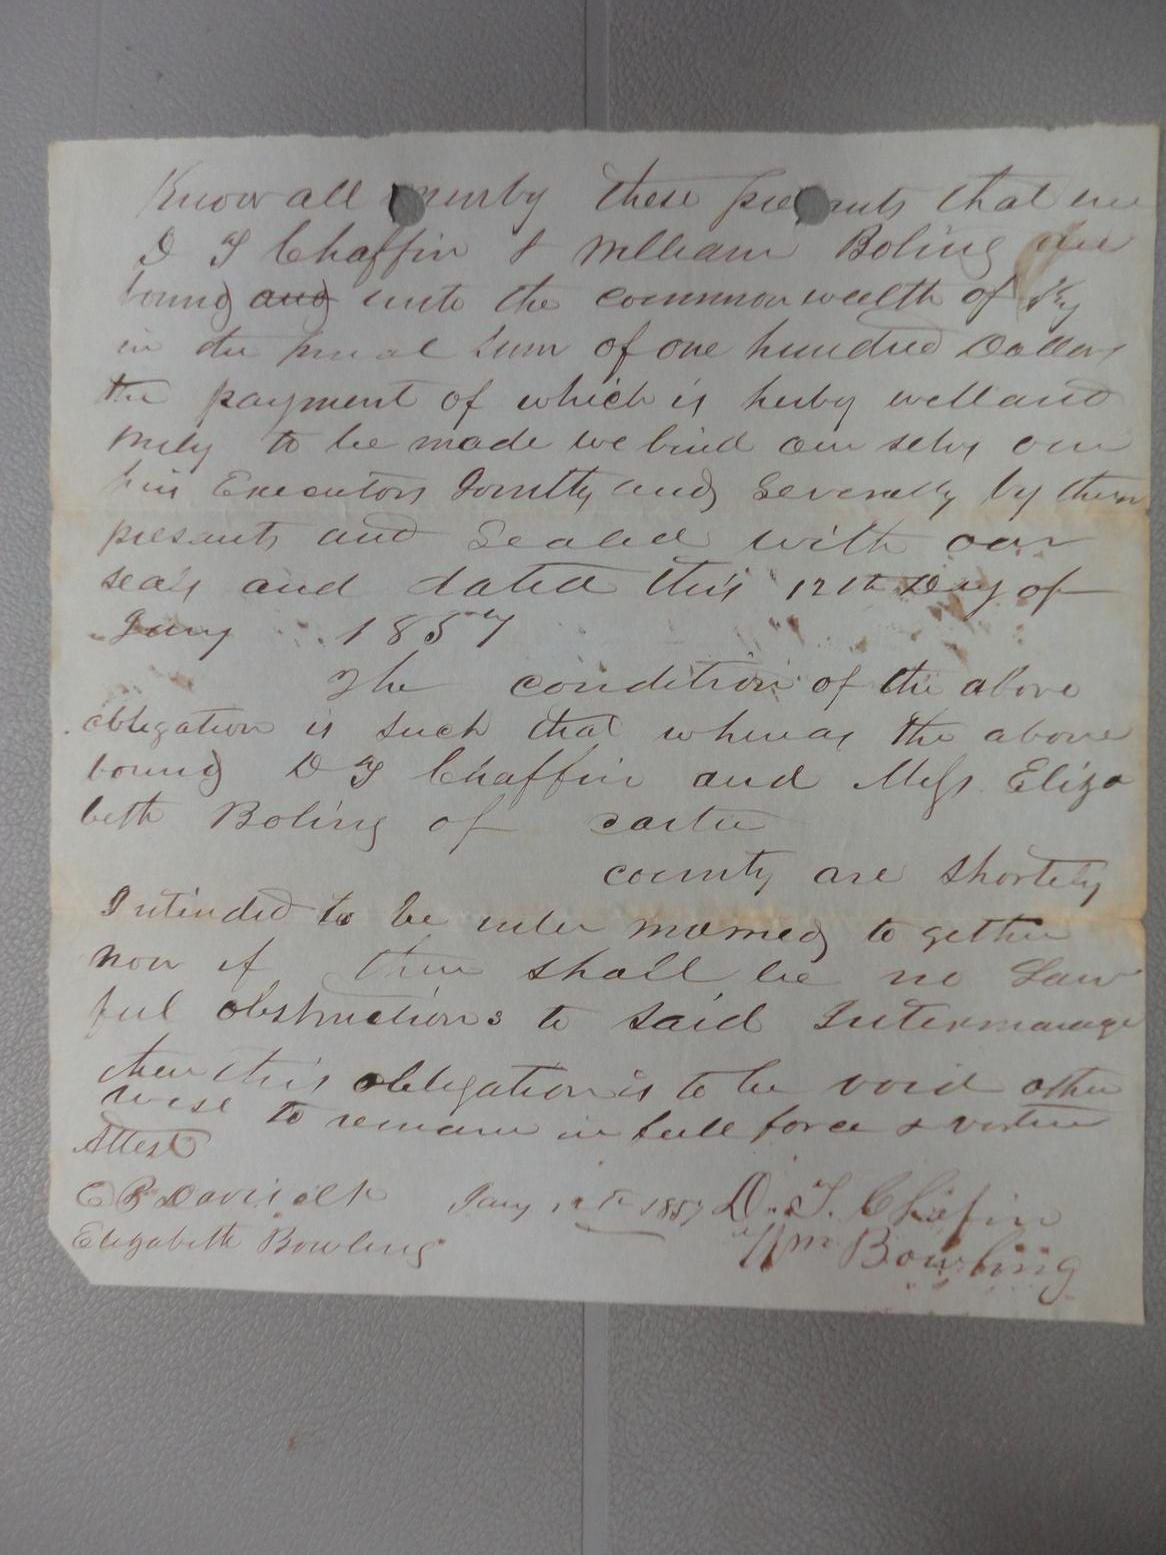 Know all menby these presants that we
D T Chaffin & William Boling are
bound and unto the commonwealth of Ky
in the pineal sum of one hundred Dollars
the payment of which is herby well and
truly to be made we bind our selvs our
heirs Executors Jointly and Severally by these
presants and Sealed with our
seals and dated this 12th Day of
Jany 1857
The condition of the above
obligation is such that whereas the above
bound D T Chaffin and Miss Eliza
beth Boling of carter
county are shortely
Intended to be inter married to gether
now if there shall be no Law
ful obstructions to said Intermarage
then this obligation is to be void other
wise to remain in full force & virtue
Attest
E B Davis clk Jany 12th 1857 D. T. Chafin
Elizabeth Bowling Wm Bowling